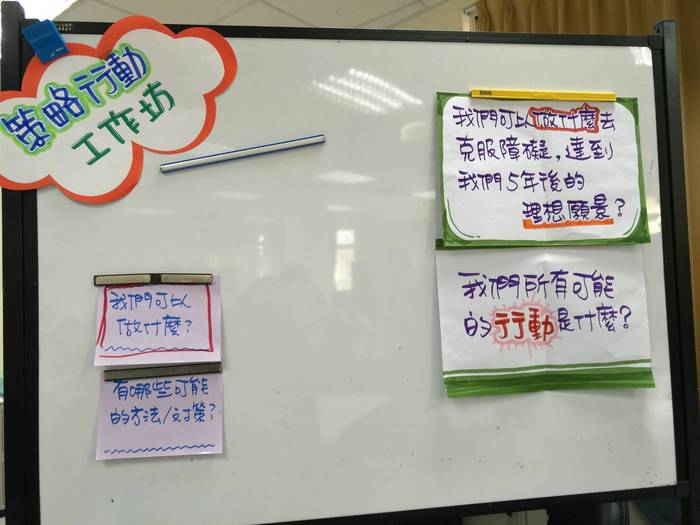 策略行動
工作坊
我們可以做什麼去
克服障礙，達到
我們5年後的
理想願景？
我們所有可能
的行動是什麼？
我們可以
做什麼？
有哪些可能
的方法/対策？